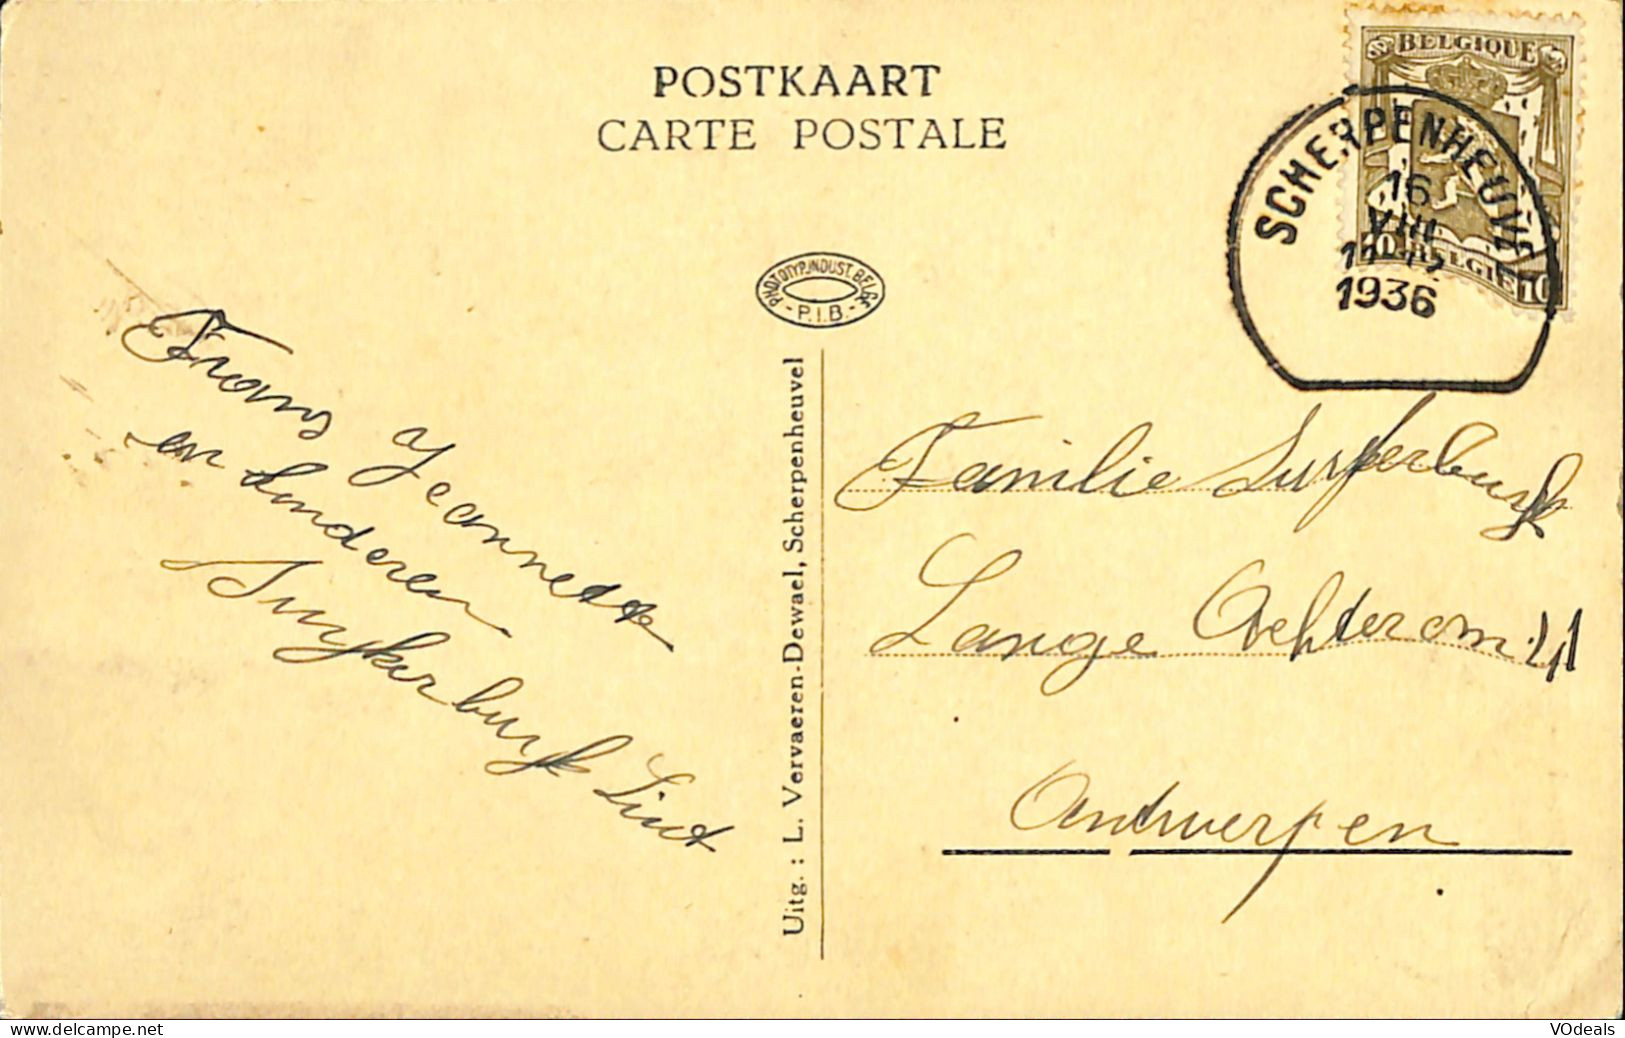 POSTKAART
CARTE POSTALE
BELGIQUE
SCHERPENHEUVEL
16
VIII
1936
BELGIE 10
PHOTOTYP. INDUST. BELGE
- P.I.B. -
Uitg. : L. Vervaeren-Dewael, Scherpenheuvel
Frans Jeannette
en kinderen
Suykerbuyk Lint
Familie Suykerbuyk
Lange Achterom 41
Antwerpen
VOdeals